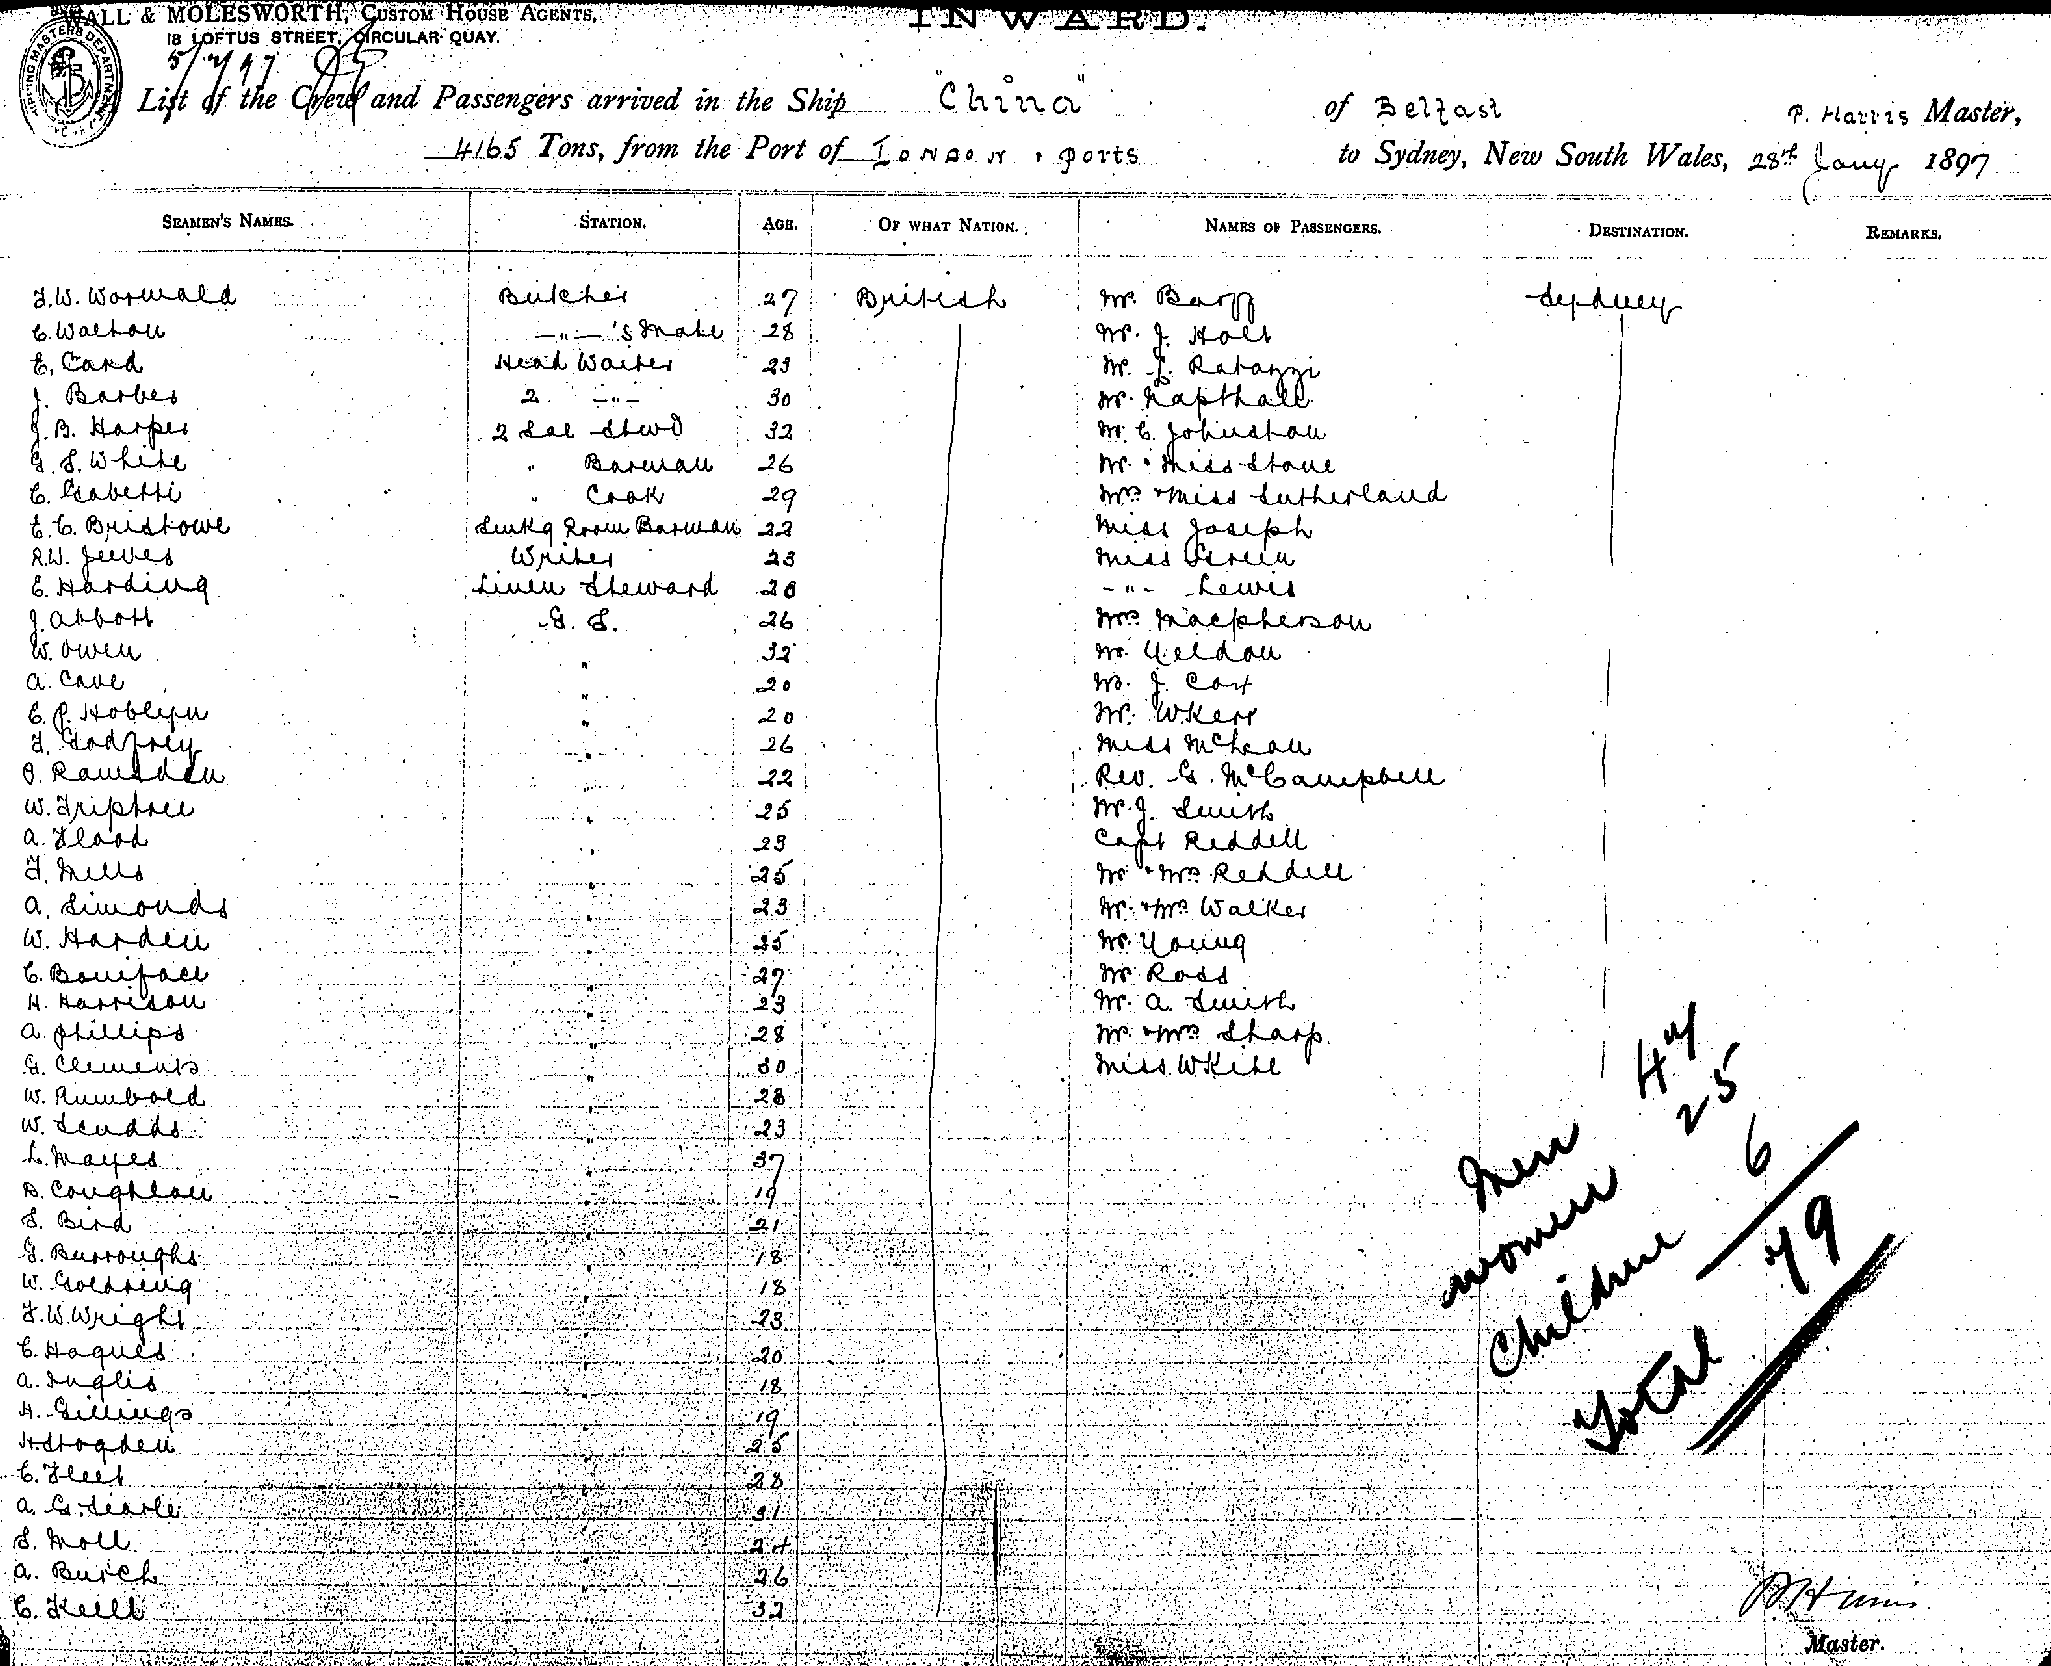 WALL & MOLESWORTH, CUSTOM HOUSE AGENTS,
18 LOFTUS STREET, CIRCULAR QUAY.
INWARD.
5/2/97
List of the Crew and Passengers arrived in the Ship "China" of Belfast P. Harris Master,
4165 Tons, from the Port of London & Ports to Sydney, New South Wales, 28th Jany 1897
SEAMEN'S NAMES. STATION. AGE. OF WHAT NATION. NAMES OF PASSENGERS. DESTINATION. REMARKS.
F.W. Wormald Butcher 27 British Mr. Barff Sydney
C. Walton —"—'s Mate 28 Mr. J. Holt
E. Card Head Waiter 23 Mr. L. Ratazzi
J. Barber 2 —"— 30 Mr. Napthall
J.B. Harper 2 Sal Stwd 32 Mr. C. Johnston
G.S. White " Barman 26 Mr. & Miss Stone
C. Gabetti " Cook 29 Mrs & Miss Sutherland
E.C. Bristowe Smkg Room Barman 22 Miss Joseph
R.W. Jeeves Writer 23 Miss Green
E. Harding Linen Steward 28 —"— Lewis
J. Abbott G. S. 26 Mrs Macpherson
W. Owen " 32 Mr. Yeldon
A. Cave " 20 Mr. J. Cox
C.P. Hoblyn " 20 Mr. W Kerr
F. Godfrey " 26 Miss McLean
J. Ramsden " 22 Rev. G. McCampbell
W. Triptree " 25 Mr. J. Smith
A. Flood " 23 Capt Reddell
F. Mills " 25 Mr & Mrs Reddell
A. Simonds " 23 Mr. & Mrs Walker
W. Harden " 25 Mr. Young
C. Boniface " 27 Mr Ross
H. Harrison " 23 Mr. A. Smith
A. Phillips " 28 Mr. & Mrs Sharp
G. Clements " 30 Miss White
W. Rumbold " 28
W. Scudds " 23
L. Mayes " 37
B. Coughlan " 19
S. Bird " 21
G. Burroughs " 18
W. Goldring " 18
F.W. Wright " 23
C. Hagues " 20
A. Inglis " 18
H. Gillings " 19
H. Stogden " 25
C. Fleet " 28
A.G. Searle " 31
S. Moll " 24
A. Burch " 26
C. Kell " 32
Men 47
Women 25
Children 6
Total 79
P. Harris
Master.